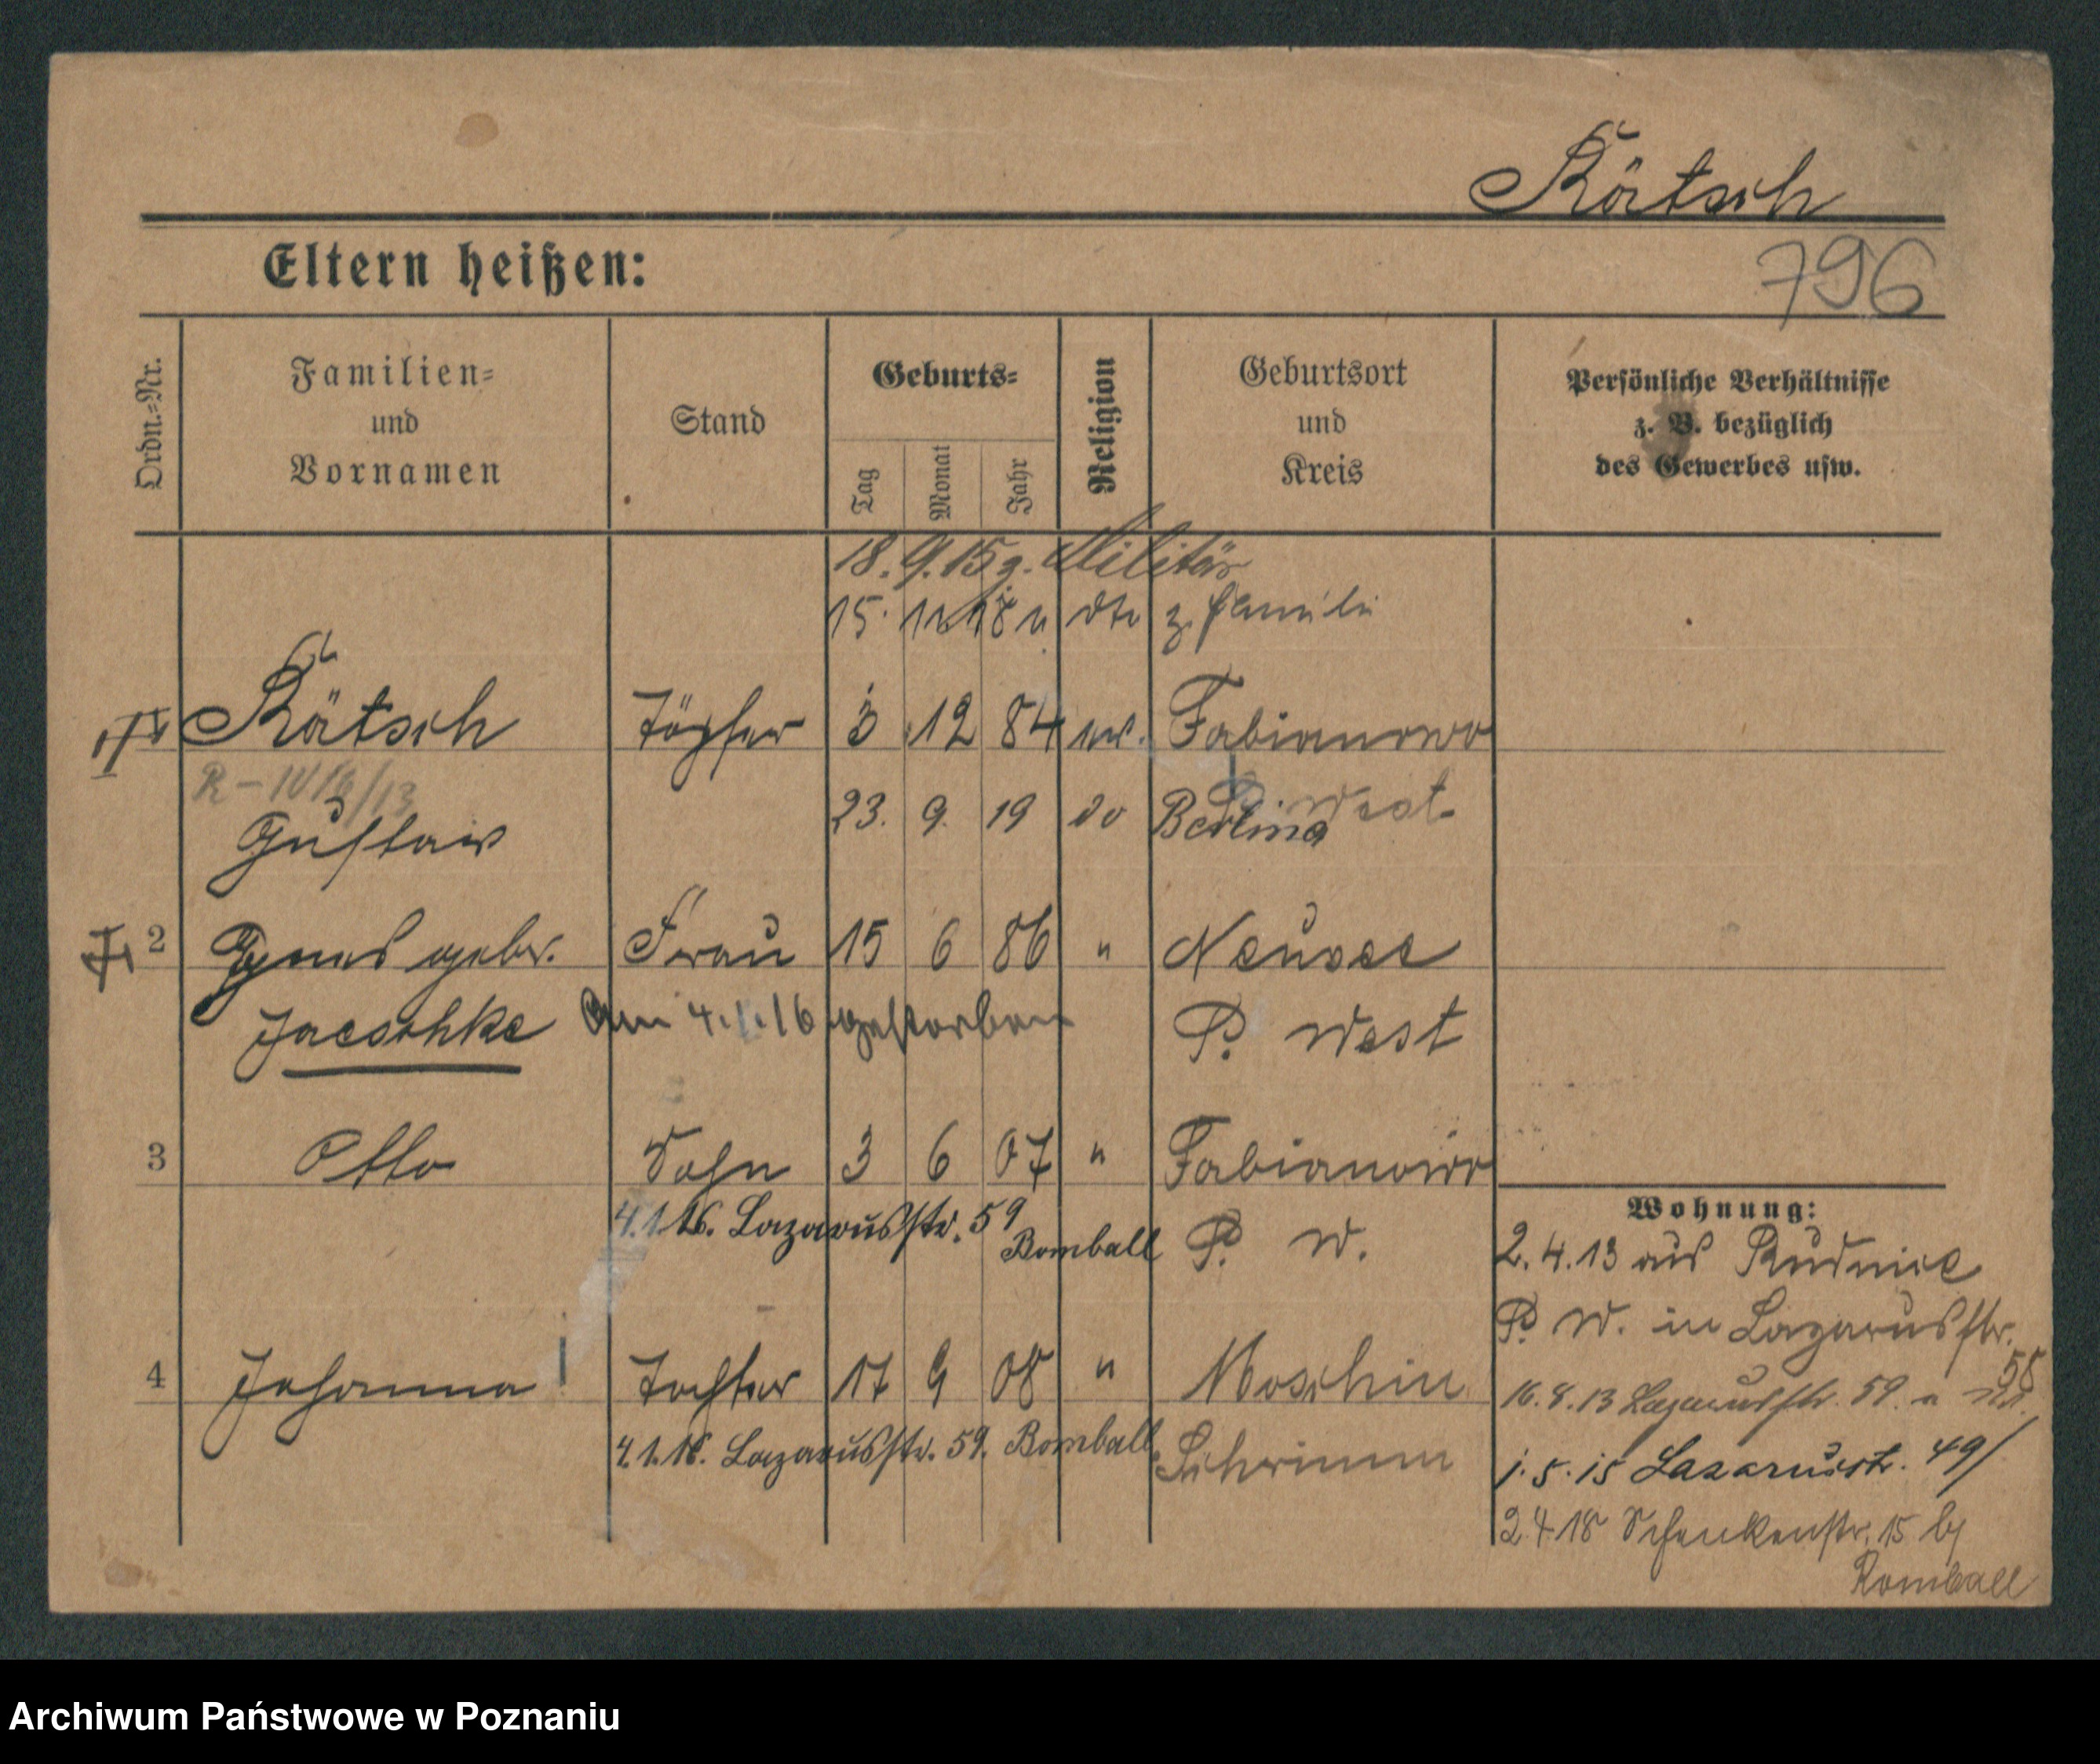 Rötsch
796
Eltern heißen:
Ordn.-Nr.
Familien-
und
Vornamen
Stand
Geburts-
Tag
Monat
Jahr
Religion
Geburtsort
und
Kreis
Persönliche Verhältnisse
z. B. bezüglich
des Gewerbes usw.
18. 9. 15 z. Militär
15. 18 z. Famili
Rötsch Töpfer 3 12 84 Fabianowo
R - 13 West
23. 9. 19 Berlin
Gustav
2 Agnes gebr. Frau 15 6 86 " Neusee
Jaeschke Am 4.1.16 gestorben P. West
3 Otto Sohn 3 6 07 " Fabianowo
4.1.16. Lazarusstr. 59
Bomball P. W.
4 Johanna Tochter 17 9 08 " Moschin
4.1.16. Lazarusstr. 59. Bomball Schrimm
Wohnung:
2. 4. 13 aus Rudnic
P. W. in Lazarusstr.
55
16. 8. 13 Lazarusstr. 59.
1. 5. 15 Lazarusstr. 49/
2 4 18 Schenkenstr. 15 by
Romball
Archiwum Państwowe w Poznaniu